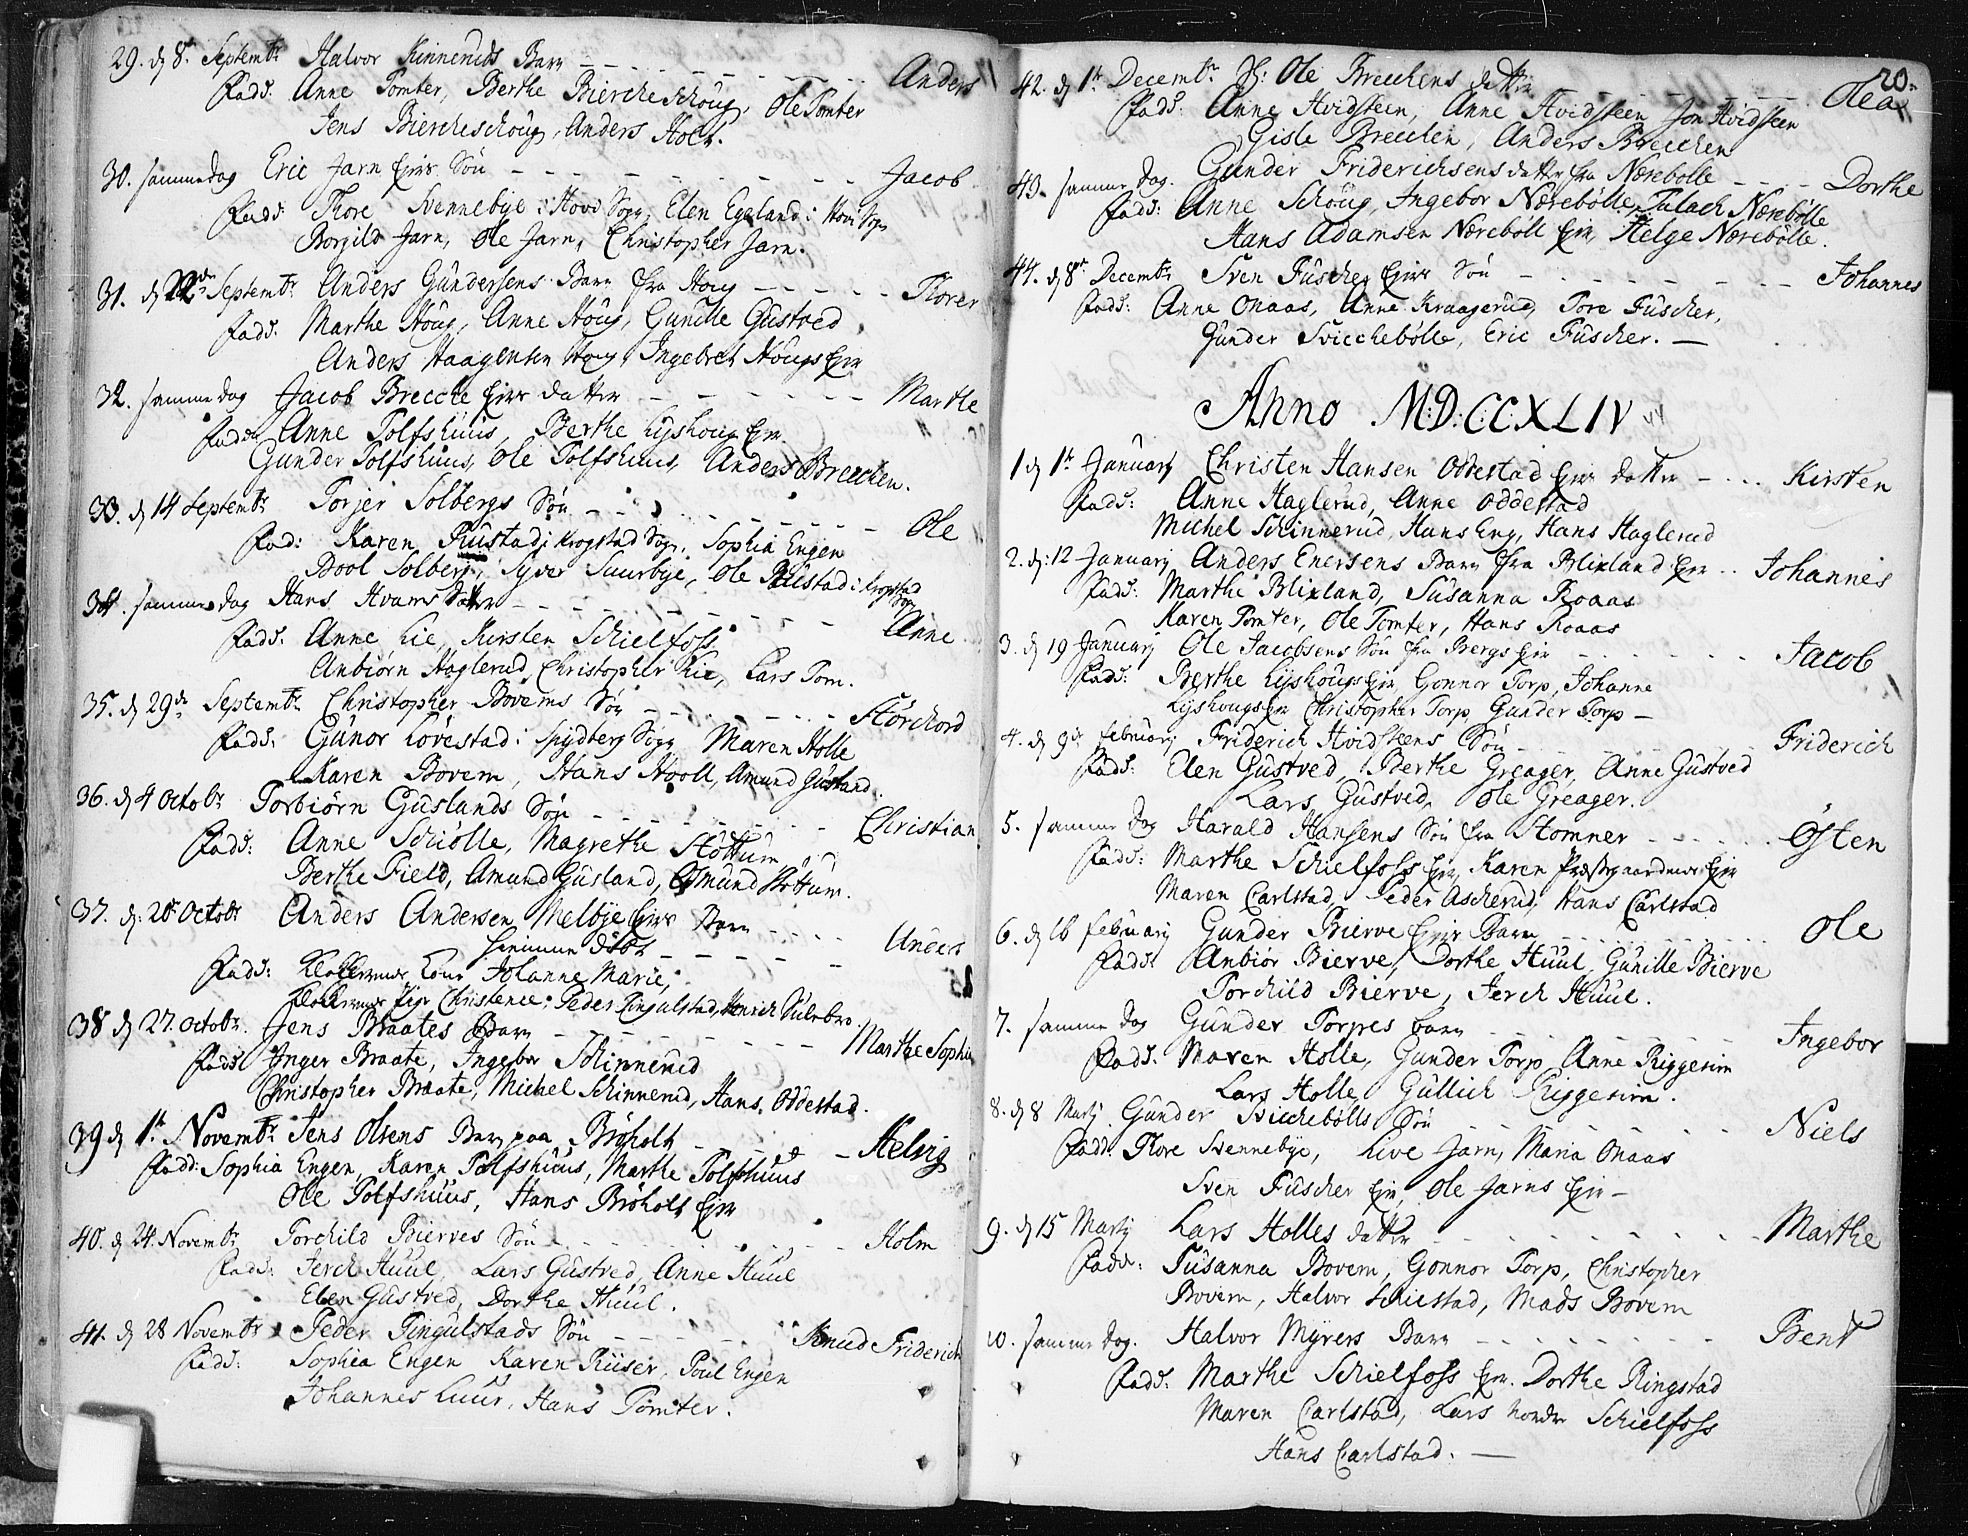 29. d 8de Septembr Halvor Kinneruds Barn - - - Anders
Fadd: Anne Tomter, Berthe Biercheschoug, Ole Tomter
Jens Biercheschoug, Anders Hoel.
30. samme dag Eric Jarn Ejers Søn - - - Jacob
Fadd: Thore Svennebye i Hovd Sogn, Elen Egeland i Hovi Sogn
Borgild Jarn, Ole Jarn, Christopher Jarn.
31. d 22de Septembr Anders Gundersens Barn fra Houg - - - Thorer
Fadd: Marthe Houg, Anne Houg, Gunille Gustved
Anders Haagensen Houg, Ingebret Hougs Ejer
32. samme dag Jacob Breche Ejers datter - - - Marthe
Fadd: Anne Tolfshuus, Berthe Lyshoug Ejer
Gunder Tolfshuus, Ole Tolfshuus, Anders Brecchen.
33. d 14 Septembr Torjer Solbergs Søn - - - Ole
Fad: Karen Rustad i Krogstad Sogn, Sophia Engen
Bool Solberg, Syver Suurbye, Ole Rustad i Krogstad Sogn
34. samme dag Hans Hvams datter - - - Anne
Fadd: Anne Lie, Kirsten Schielfoss
Anbiørn Haglerud, Christopher Lie, Lars Tom.
35. d 29de Septembr Christopher Bovems Søn - - - Storchord
Fadd: Gunor Løvestad i Spydberg Sogn Maren Holle
Karen Bovem, Hans Hooll, Amund Gusland.
36. d 4 Octobr Torbiørn Guslands Søn - - - Christian
Fadd: Anne Schiølle, Magrethe Støttum
Berthe Field, Amund Gusland, Asmund Støttum.
37. d. 20 Octobr Anders Andersen Melbye Ejers Barn - - - Anders
hiemme døbt - - -
Fadd: Klockerens Kone Johanne Marie,
Klockerens Pige Christence, Peder Ringulstad, Henrich Sulebro
38 d 27. Octobr. Jens Braates Barn - - - Marthe Sophia
Fadd: Inger Braate, Ingebor Schinnerud
Christopher Braate, Michel Schinnerud, Hans Oddestad.
39 d 1te Novembr Jens Olsens Barn paa Brøholt - - - Helvig
Fadd: Sophia Engen, Karen Tolfshuus, Marthe Tolfshuus
Ole Tolfshuus, Hans Brøholt Ejer
40. d 24 Novembr Torchild Bierves Søn - - - Holm
Fadd: Jerch Huul, Lars Gustved, Anne Huul
Elen Gustved, Dorthe Huul.
41. d 28 Novembr Peder Ringulstads Søn - - - Knud Friderich
Fadd: Sophia Engen Karen Riiser, Poul Engen
Johannes Luur, Hans Tomter.
20.
42. d 1te Decembr Sl: Ole Brecchens datter - - - Olea
Fadd: Anne Hvidsteen, Anne Hvidsteen Jon Hvidsteen
Gisle Brecchen, Anders Brecchen
43. samme dag. Gunder Friderichsens datter fra Nærebølle - - - Dorthe
Fadd: Anne Schoug, Ingebor Nærebølle, Palach Nærebølle
Hans Adamsen Nærebøll Ejer, Helge Nærebølle.
44. d 8de Decembr Sven Fuscher Ejers Søn - - - Johannes
Fadd: Anne Onaas, Anne Kraagerud, Tore Fuscher,
Gunder Svicchebølle, Eric Fuscher. -
Anno M:D:CCXLIV 44
1 d 1te January Christen Hansen Oddestad Ejers datter - - - Kirsten
Fadd: Anne Haglerud, Anne Oddestad
Michel Schinnerud, Hans Eng, Hans Haglerud
2. d: 12 January Anders Enersens Barn fra Blixland Ejer - - Johannes
Fadd: Marthe Blixland, Susanna Roaas
Karen Tomter, Ole Tomter, Hans Roaas
3. d 19 January Ole Jacobsens Søn fra Bergs Ejer - - - Jacob
Fadd: Berthe Lyshougs Ejer, Gonnor Torp, Johanne
Lyshougs Ejer Christopher Torp Gunder Torp -
4. d 9de February Friderich Hvidsteens Søn - - - Friderich
Fadd: Elen Gustved, Berthe Greager, Anne Gustved
Lars Gustved, Ole Greager.
5. samme dag Harald Hansens Søn fra Stomner - - - Østen
Fadd: Marthe Schielfoss Ejer, Karen Præstegaardens Ejer
Maren Carlstad, Peder Ascherud, Hans Carlstad
6. d 16 February Gunder Bierve Ejers Barn - - - Ole
Fadd: Anbiør Bierve, Dorthe Huul, Gunille Bierve
Torchild Bierve, Jerch Huul.
7. samme dag Gunder Torpes barn - - - Ingebor
Fadd. Maren Holle, Gunder Torp, Anne Riggesim
Lars Holle, Gullich Riggesim.
8. d 8 Marty Gunder Svicchebølls Søn - - - Niels
Fadd: Thore Svennebye, Live Jarn, Maria Onaas
Sven Fuscher Ejer, Ole Jarns Ejer -
9. d 15 Marty Lars Holles datter - - - Marthe
Fadd: Susanna Bovem, Gonnor Torp, Christopher
Bovem, Halvor Schiestad, Mads Bovem
10. samme dag. Halvor Myrers Barn - - - Bent
Fadd. Marthe Schielfoss Ejer. Dorthe Ringstad
Maren Carlstad, Lars nordre Schielfoss
Hans Carlstad. -